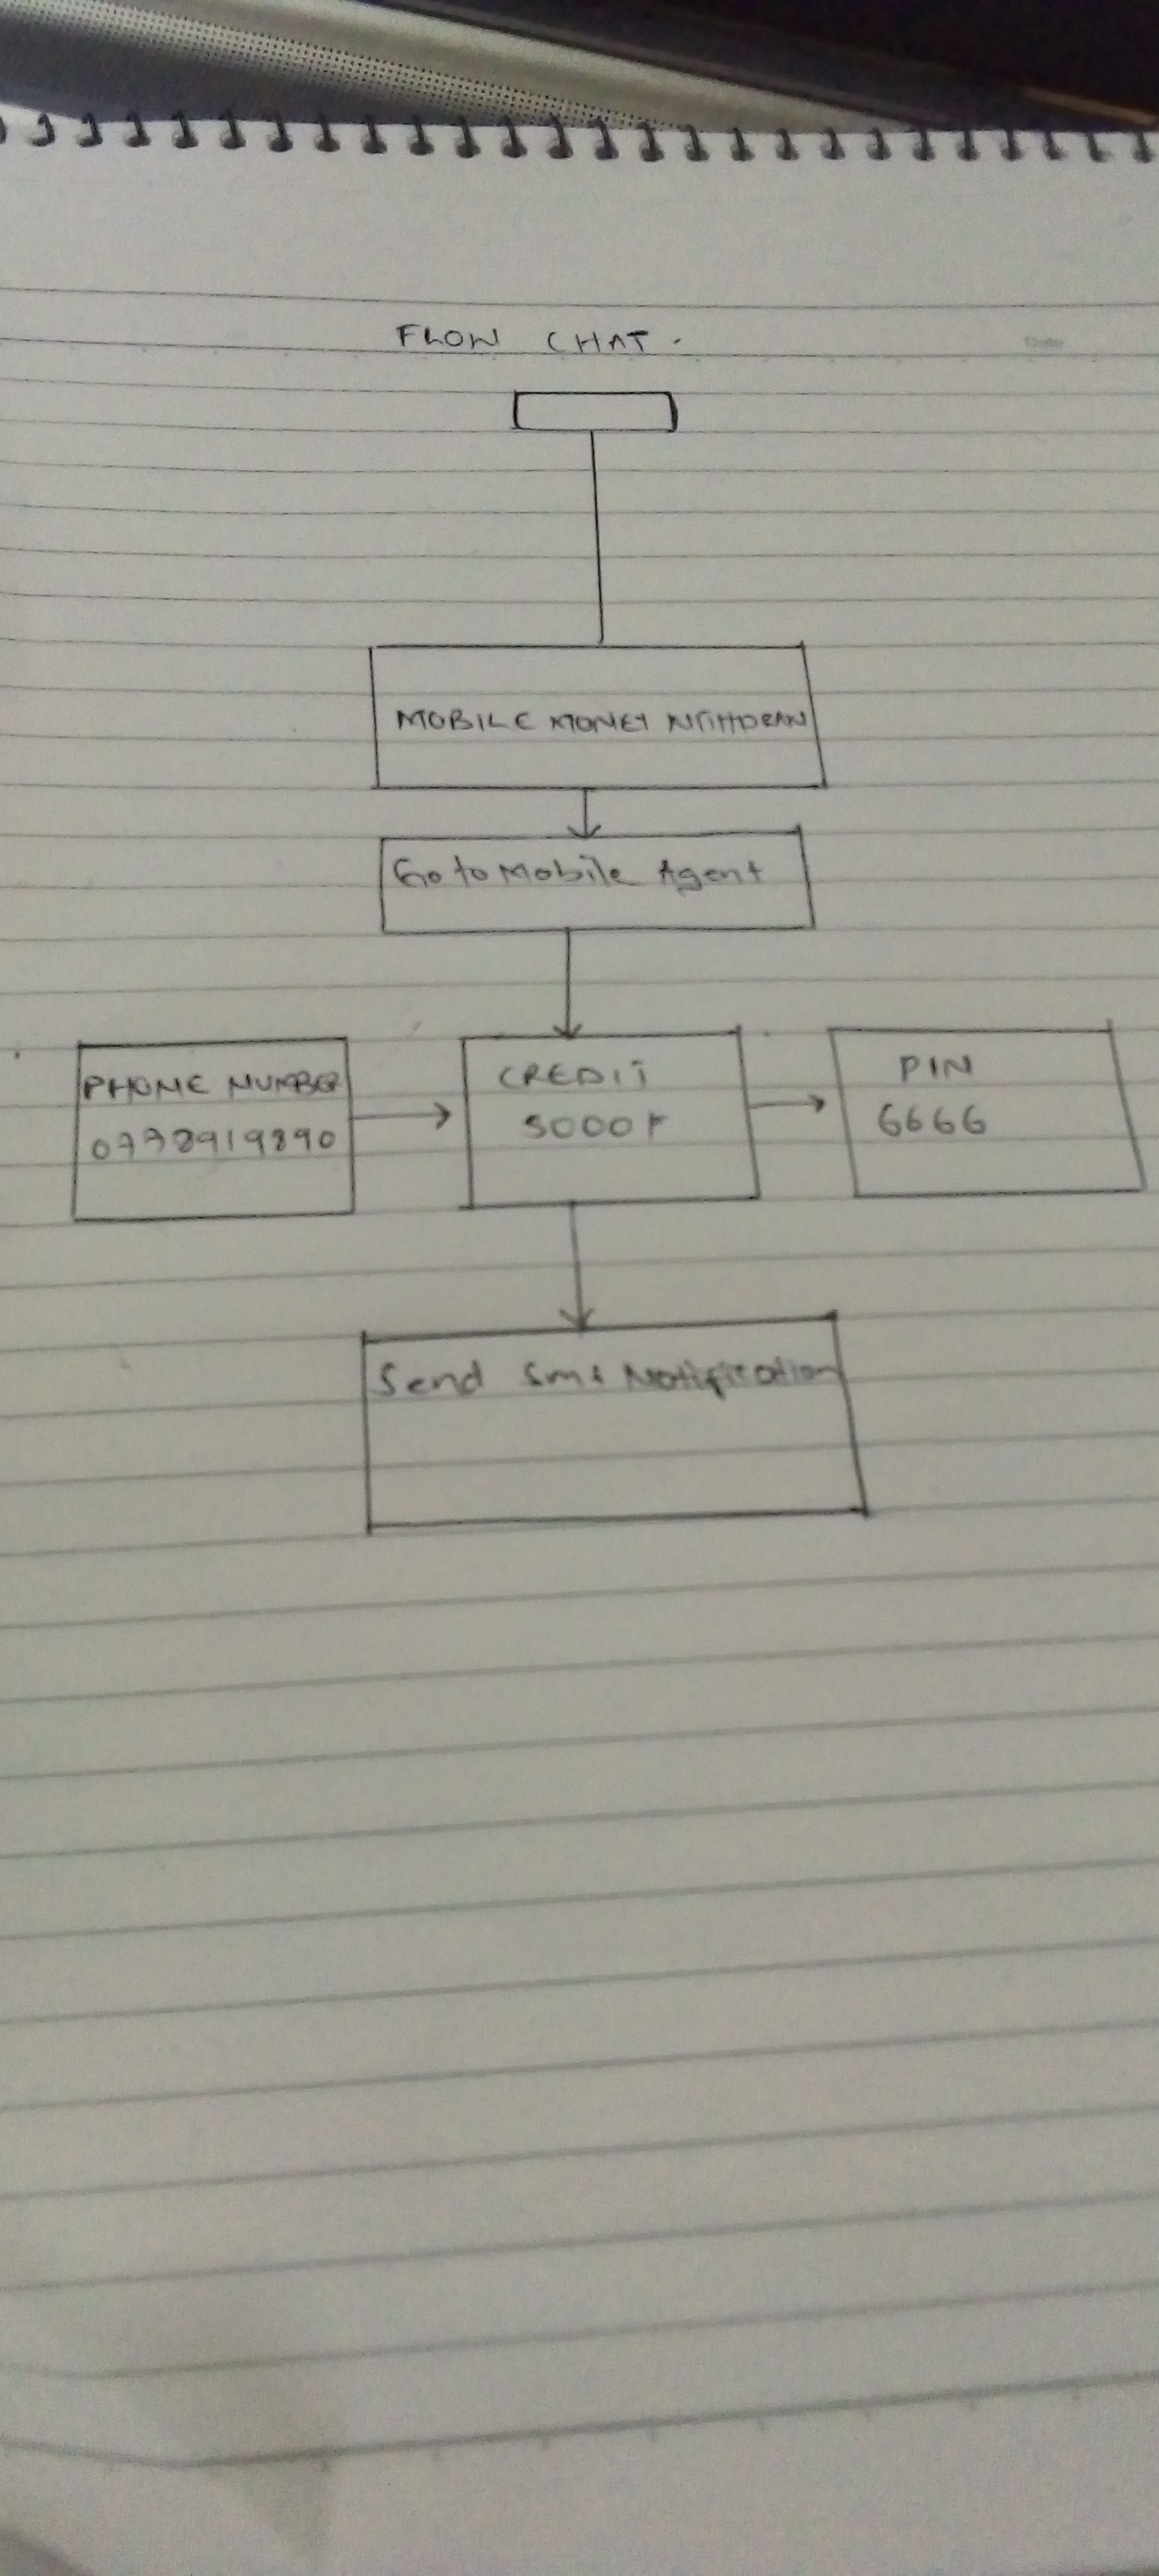 FLOW CHAT.
MOBILE MONEY WITHDRAW
Go to Mobile Agent
PHONE NUMBER
0778919890
CREDIT
5000F
PIN
6666
Send Sms Notification